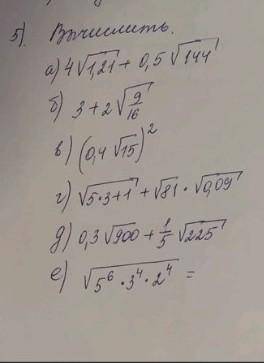 5) Вычислить.
а) 4√1,21 + 0,5√144
б) 3 + 2√9/16
в) (0,4√15)²
г) √5·3+1 + √81 · √0,09
д) 0,3√900 + 1/5√225
е) √5⁶·3⁴·2⁴ =